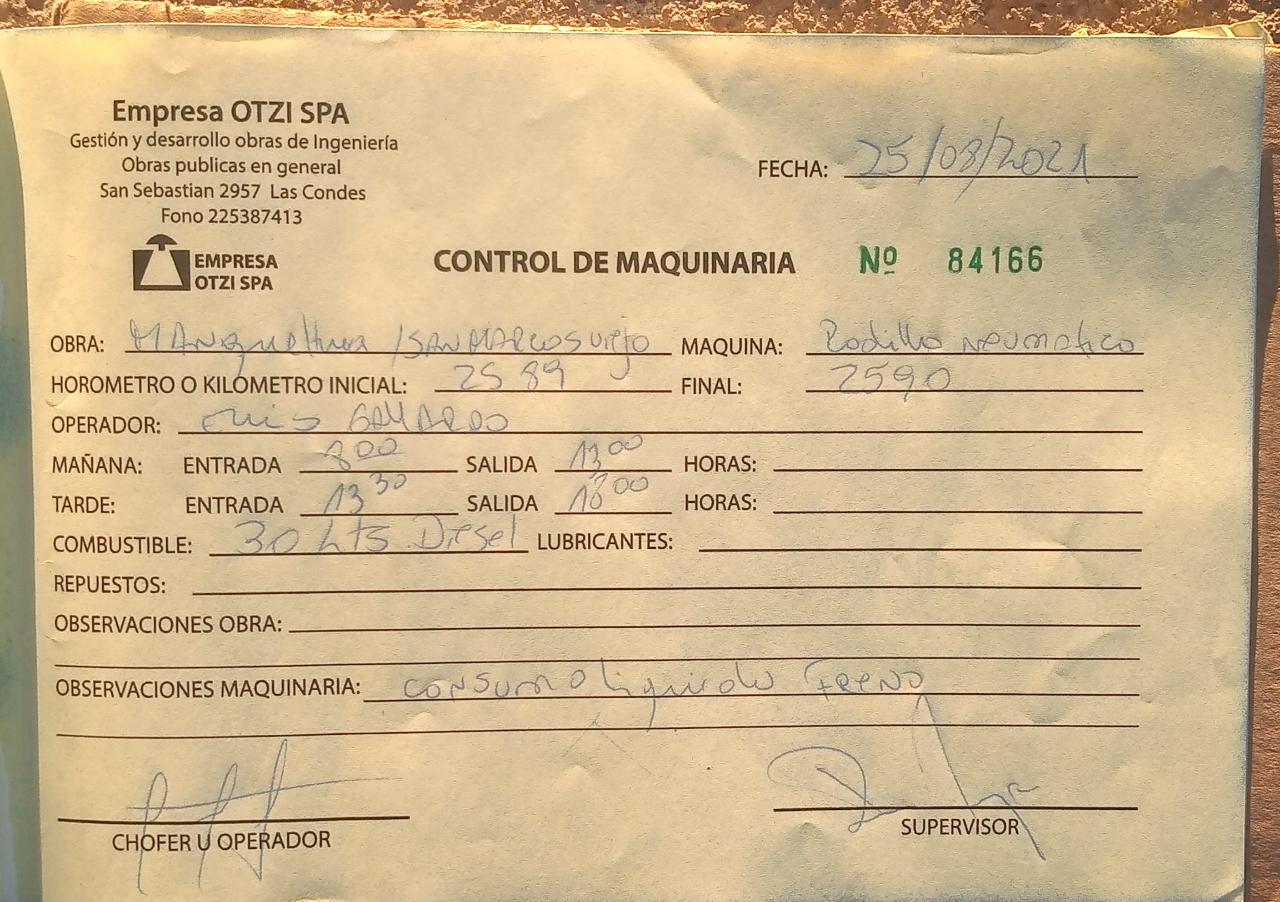 Empresa OTZI SPA
Gestión y desarrollo obras de Ingeniería
Obras publicas en general
San Sebastian 2957 Las Condes
Fono 225387413
FECHA: 25/08/2021
EMPRESA
OTZI SPA
CONTROL DE MAQUINARIA Nº 84166
OBRA: /SAN MARCOS Viejo MAQUINA: Rodillo Neumatico
HOROMETRO O KILOMETRO INICIAL: 2589 FINAL: 2590
OPERADOR: Luis
MAÑANA: ENTRADA 800 SALIDA 1300 HORAS:
TARDE: ENTRADA 1330 SALIDA HORAS:
COMBUSTIBLE: 30 Lts Diesel LUBRICANTES:
REPUESTOS:
OBSERVACIONES OBRA:
OBSERVACIONES MAQUINARIA: Consumo liquido Freno
CHOFER U OPERADOR
SUPERVISOR